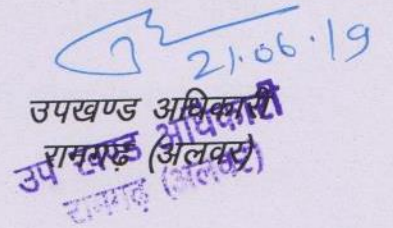 21.06.19
उपखण्ड अधिकारी
रामगढ़ (अलवर)
उप खण्ड अधिकारी
रामगढ़ (अलवर)